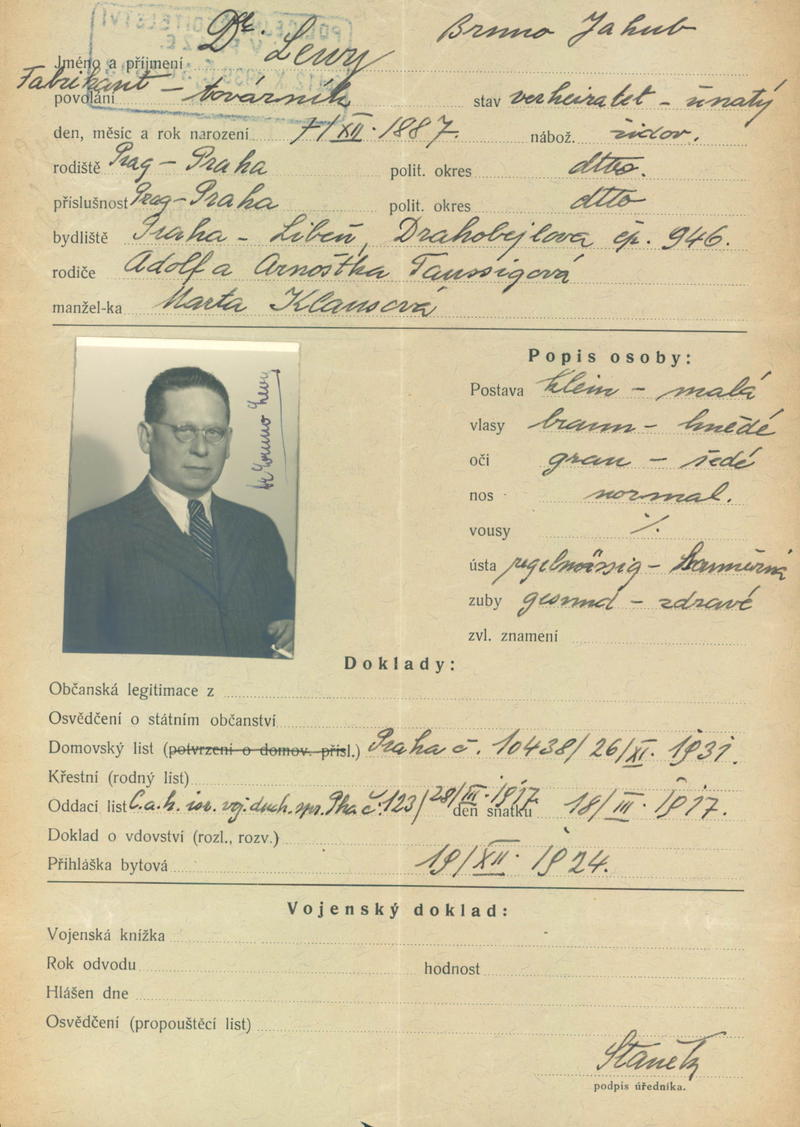 Dr. Lewy Bruno Jakub
Jméno a příjmení
Fabrikant – továrník
povolání stav verheiratet – ženatý
den, měsíc a rok narození 7/XII. 1887. nábož. židov.
rodiště Prag – Praha polit. okres dtto.
příslušnost Prag – Praha polit. okres dtto
bydliště Praha – Libeň, Drahobejlova čp. 946.
rodiče Adolf a Arnoštka Taussigová
manžel-ka Marta Klausová
Popis osoby:
Postava klein – malá
vlasy braun – hnědé
oči grau – šedé
nos normal.
vousy ·/.
ústa regelmässig –
zuby gesund – zdravé
zvl. znamení
Dr Bruno Lewy
Doklady:
Občanská legitimace z
Osvědčení o státním občanství
Domovský list (potvrzení o domov. přísl.) Praha č. 10438/26/XI. 1931.
Křestní (rodný list)
Oddací list C.a.k. isr. voj. duch. spr. Pha č. 123/28/III. 1917. den sňatku 18/III. 1917.
Doklad o vdovství (rozl., rozv.)
Přihláška bytová 19/XII. 1924.
Vojenský doklad:
Vojenská knížka
Rok odvodu hodnost
Hlášen dne
Osvědčení (propouštěcí list)
Staněk
podpis úředníka.